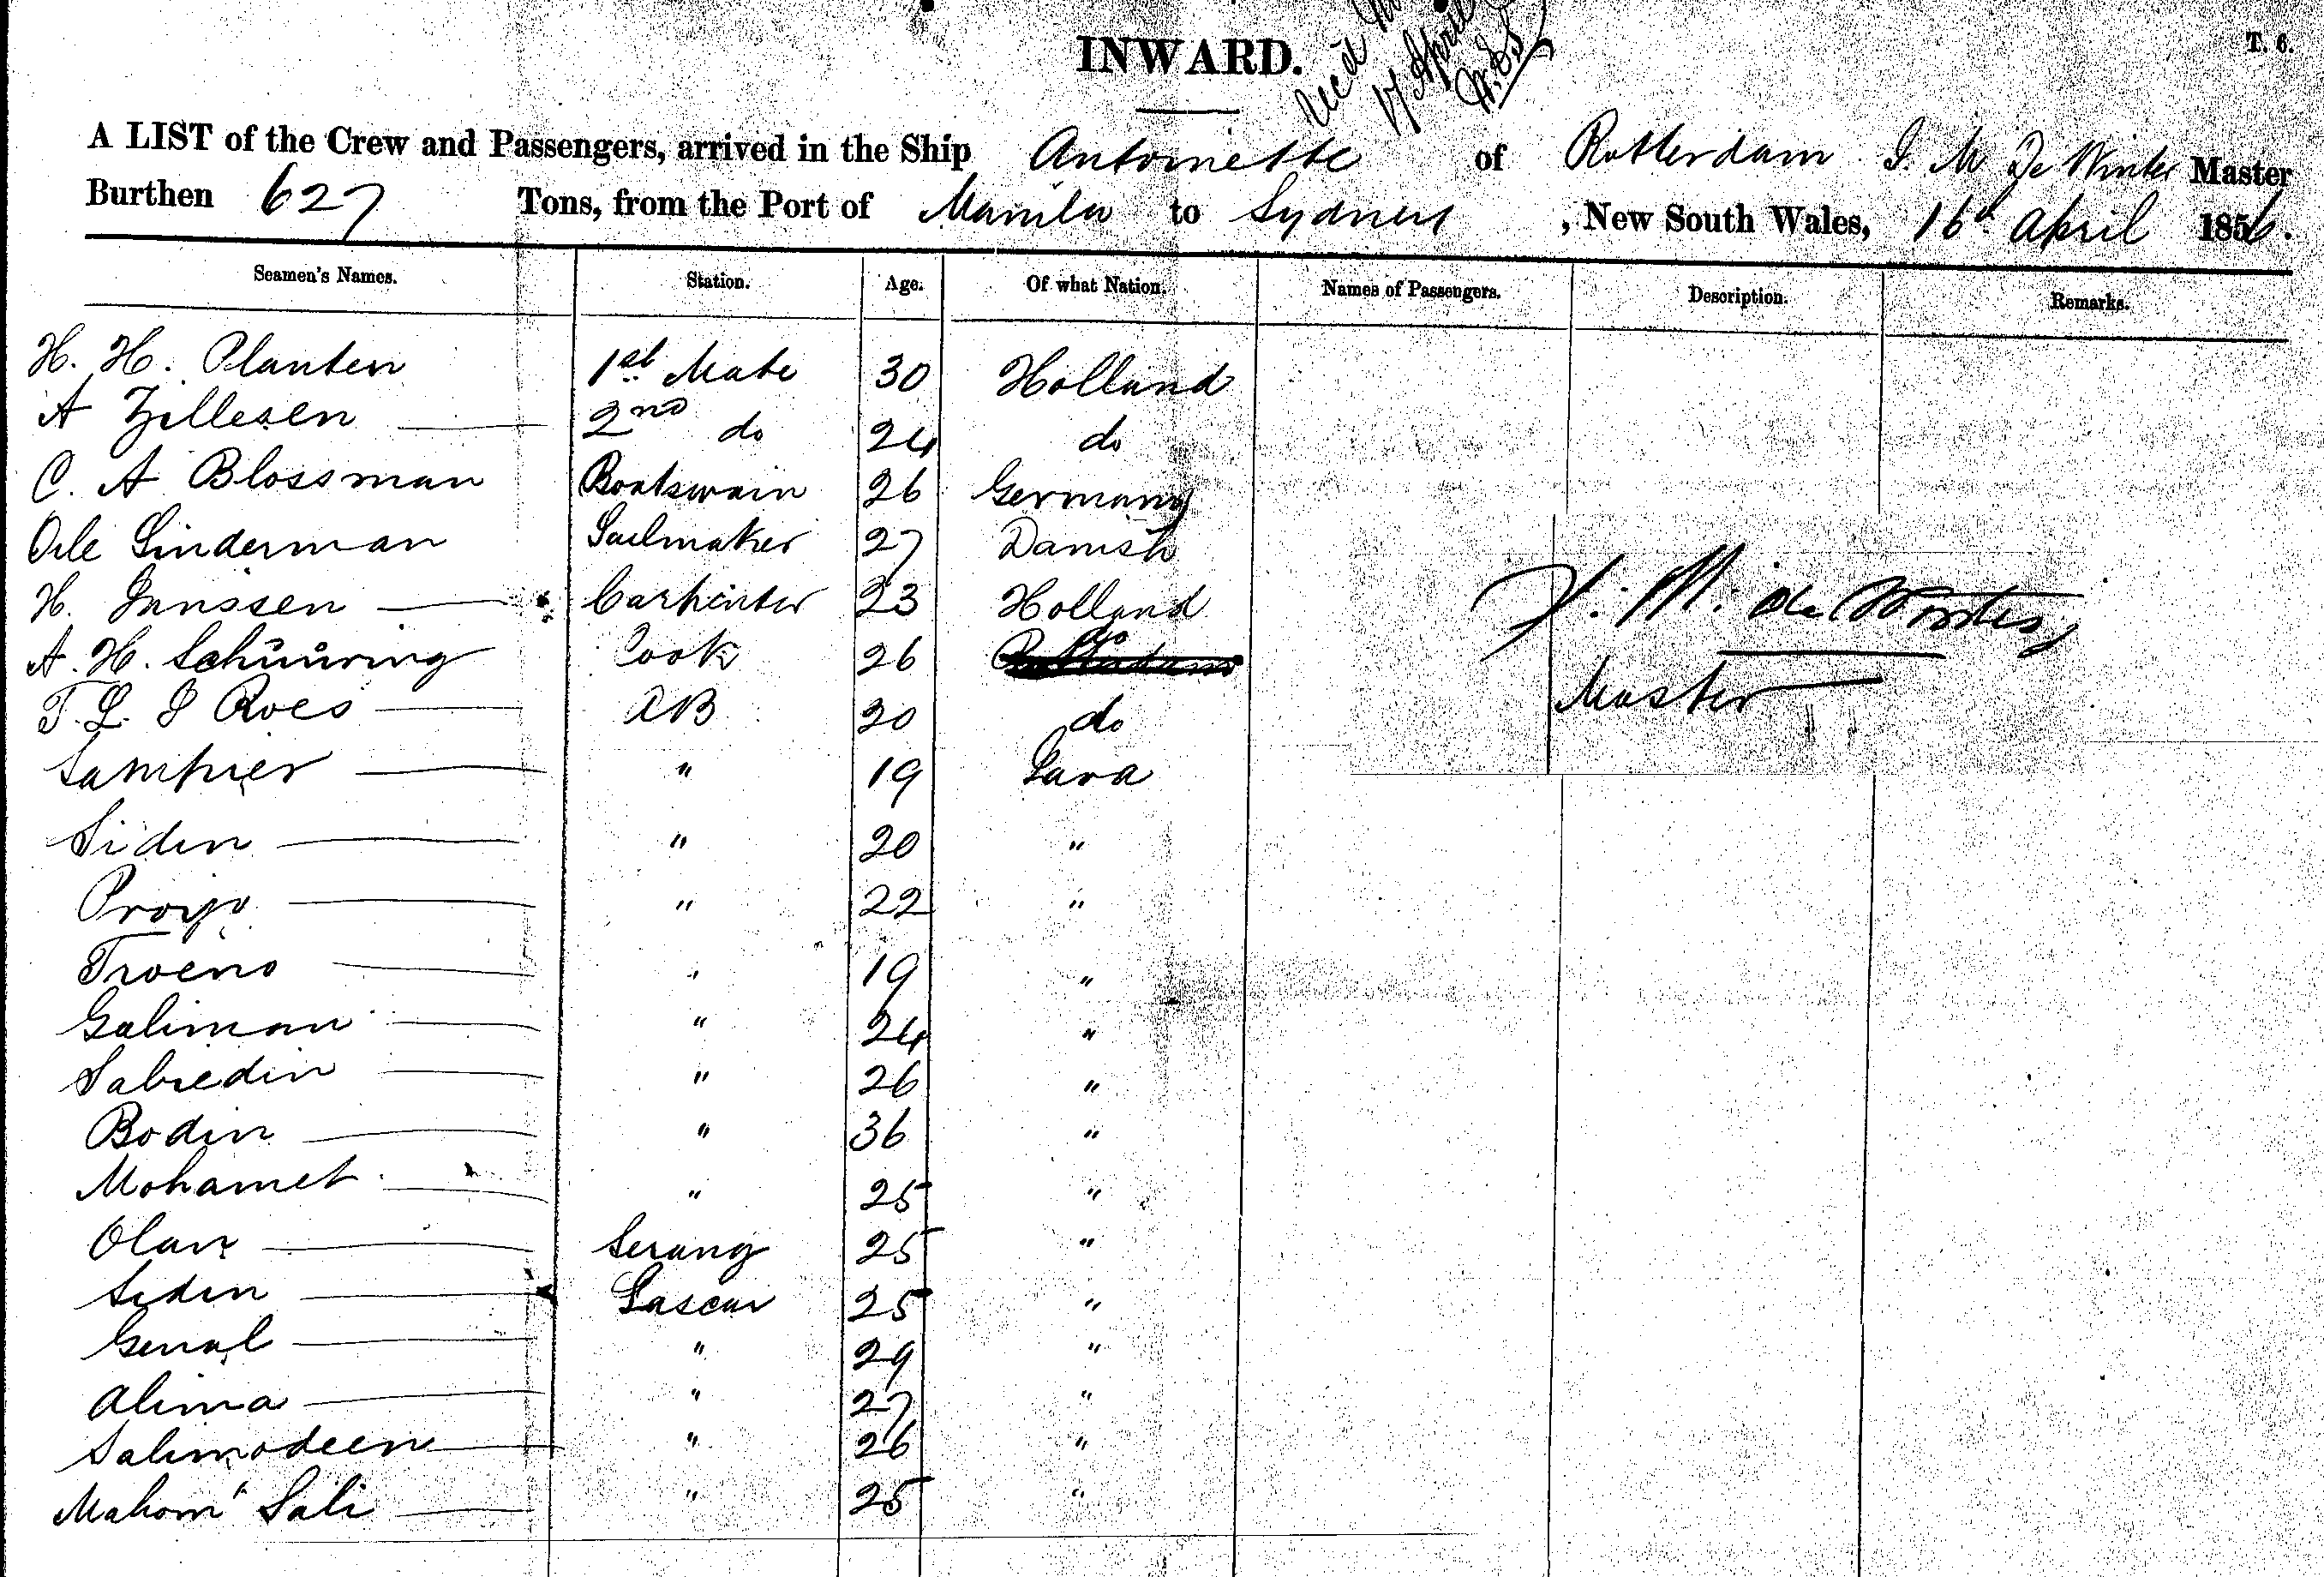 INWARD.
T. 6.
Rec'd
17 April
A LIST of the Crew and Passengers, arrived in the Ship Antoinette of Rotterdam J. M De Winter Master
Burthen 627 Tons, from the Port of Manila to Sydney , New South Wales, 16th April 1856.
Seamen's Names. Station. Age. Of what Nation. Names of Passengers. Description. Remarks.
H. H. Planten 1st Mate 30 Holland
A Zillesen 2nd do 24 do
C. A Blossman Boatswain 26 Germany
Ole Linderman Sailmaker 27 Danish
H. Janssen Carpenter 23 Holland
A. H. Schüüring Cook 26 do
T. L. J Roes AB 20 do
Sampier " 19 Java
Sidin " 20 "
Proyo " 22 "
Troeno " 19 "
Galiman " 24 "
Sabiedin " 26 "
Bodin " 36 "
Mohamet " 25 "
Olan Serang 25 "
Sidin Lascar 25 "
Genal " 29 "
Alima " 27 "
Salimodeen " 26 "
Mahom' Sali " 25 "
J. M. de Winter
Master